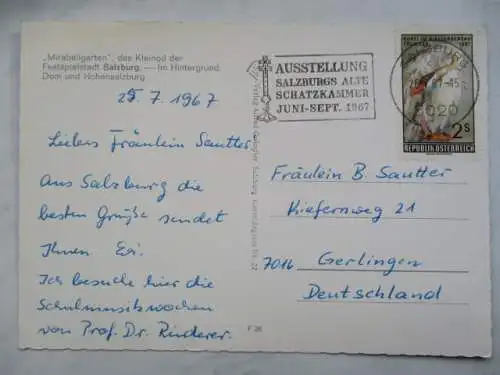 „Mirabellgarten", das Kleinod der
Festspielstadt Salzburg. — Im Hintergrund:
Dom und Hohensalzburg
25. 7. 1967
Liebes Fräulein Sautter,
Aus Salzburg die
besten Grüße sendet
Ihnen Evi.
Ich besuche hier die
Schulmusikwochen
von Prof. Dr. Rinderer.
AUSSTELLUNG
SALZBURGS ALTE
SCHATZKAMMER
JUNI-SEPT. 1967
5020
2s
REPUBLIK ÖSTERREICH
Fräulein B. Sautter
Kiefernweg 21
7016 Gerlingen
Deutschland
F 26